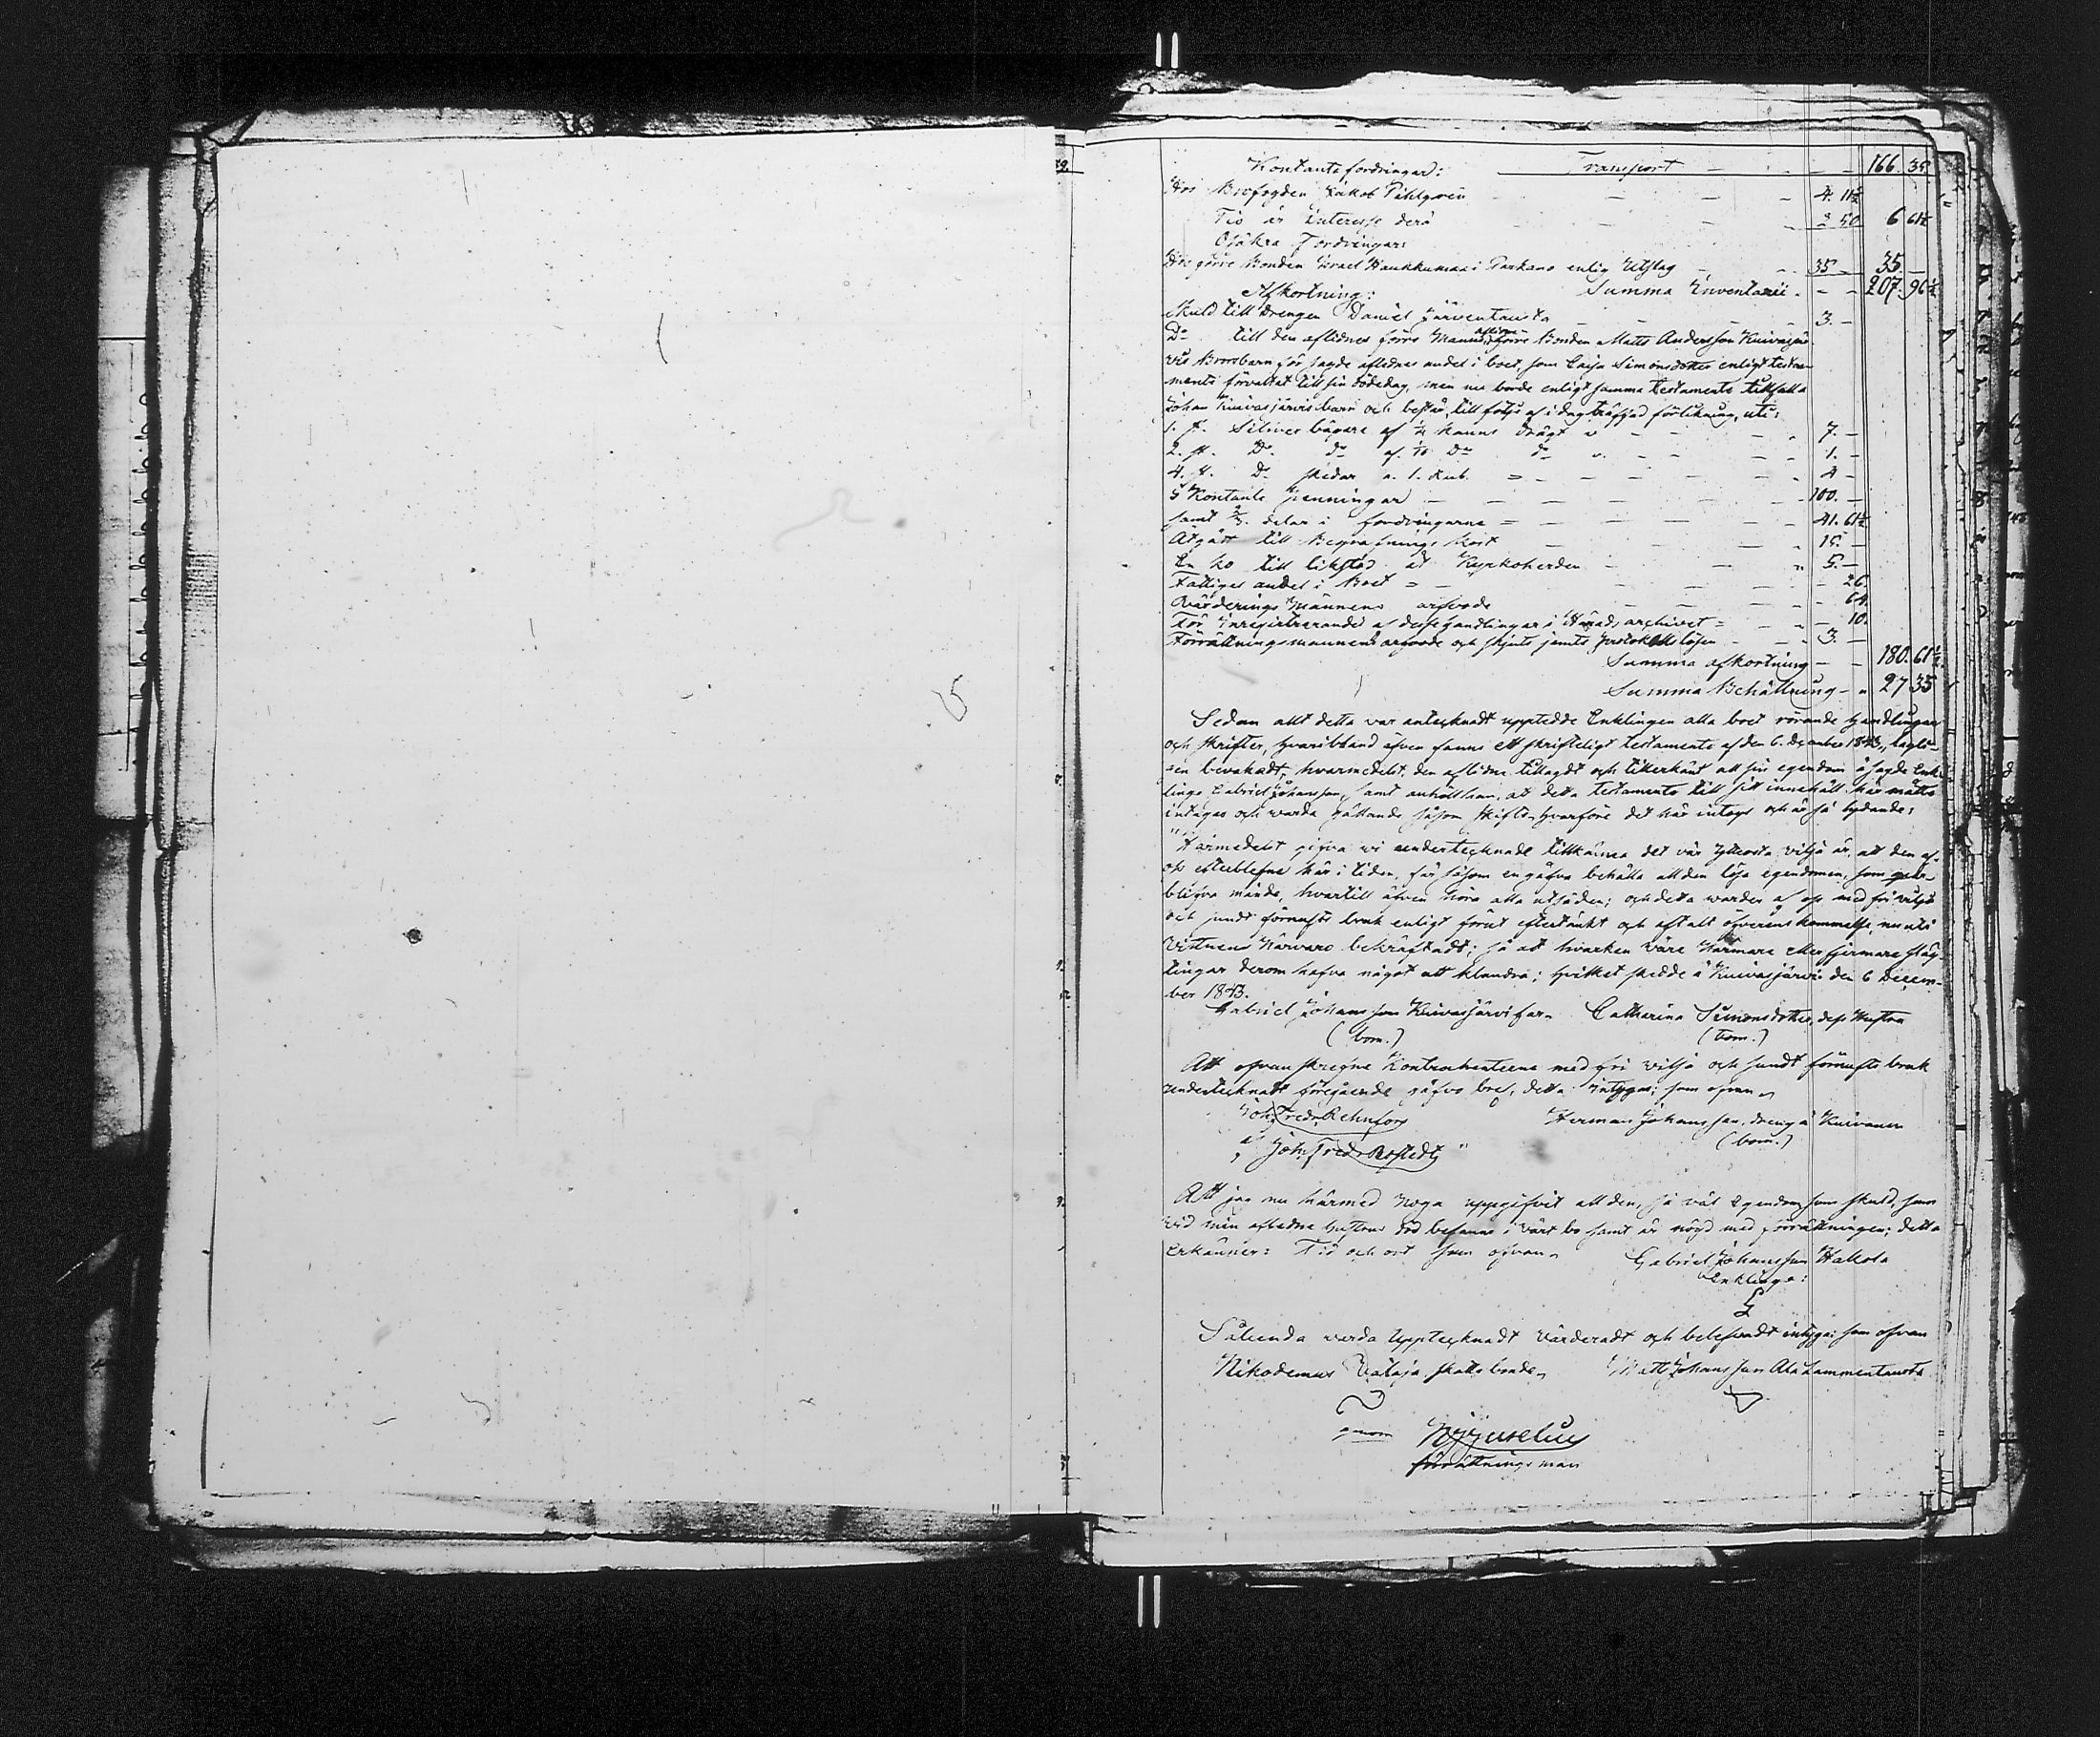 Kontanta fordringar: Transport — — — 166. 35.
Hos Brofogden Jakob Pihlgren — — — 4. 11½
Tio år interesse derå — — — 2 50 6 61½
Osäkra Fordringar:
Hos förre Bonden Israel Haukkumaa i Parkano enlig Utslag — 35 — 35. —
Afkortning: Summa Inventarii. — — 207. 96½
Skuld till Drengen Daniel Järventausta — — — 3. —
Do till den aflidnes förre Manns, aflidne förre Bonden Matts Andersson Kuivasjär
vis Brorsbarn för sagde aflidnes andel i boet, som Caisa Simonsdotter enligt testa-
mente förvaltat till sin dödedag, men nu borde enligt samma testamente tillfalla
Johan Kuivasjärvis barn och består, till följe af i dag träffad förlikning, uti:
1. st. Silfver bägare af ¼ kanns drägt — — — 7. —
2. st. Do. do af. Do do — — 1. —
4. st. Do skedar a. 1. Rub. = — — — 4 —
i Kontante penningar — — — — 100. —
samt ⅔. delar i fordringarne = — — — 41. 61½
Åtgått till Begrafnings kost — — — 15. —
En ko till likstod åt Kyrkoherden — — 5. —
Fattiges andel i Boet = — — — — 26.
Värderings Männens arfvode — — — — 64.
För Inregistrerandet af desse handlingar i Härads archivet = — — 10.
Förrättningsmannens arfvode och skjuts jemte protokolls lösen — — 3. —
Summa afkortning — — 180. 61½
Summa Behållning — „ 27 35
Sedan allt detta var antecknadt uppteddе Enklingen alla boet rörande Handlingar
och skrifter, hvaribland äfven fanns ett skrifteligt testamente af den 6. December 1843, lagli-
gen bevakadt, hvarmedelst den aflidne tillagdt och tillerkänt all sin egendom å sagde Enk-
linge Gabriel Johansson, samt anhöll han, att detta testamente till sitt innehåll här måtte
intagas och varda gällande såsom skifte, hvarföre det här intogs och är så lydande:
"Härmedelst gifva vi undertecknade tillkänna det vår yttersta vilja är, att den af
oss efterblefne här i tiden, får såsom en gåfva behålla all den lösa egendomen, som
blifva månde, hvartill äfven höra alla utsäden; och detta warder af oss med fri vilje
och sundt förnufts bruk enligt förut eftertänkt och aftalt öfverenskommelse, nu uti
Vittnens Närvaro bekräftadt; så att hvarken våre Närmare eller fjermare släg-
tingar derom hafva något att klandra; hvilket skedde å Kuivasjärvi den 6 Decem-
ber 1843.
Gabriel Johansson Kuivasjärvi far. Catharina Simonsdotter, dess Hustru
(bom.) (bom.)
Att ofvanskrefne Kontrahenterne med fri vilja och sundt förnufts bruk
undertecknadt föregående gåfvo bref, detta intyga; som ofvan
Joh. Fredr. Rehnfors Herman Johansson, dreng å Kuivanen
(bom.)
af Joh. Fredr. "
Att jag nu härmed noga uppgifvit all den, så väl Egendom som skuld, som
vid min aflidna hustrus död befanns i vårt bo samt är nöjd med förrättningen; detta
erkänner: Tid och ort som ofvan.
Gabriel Johansson Hakola
Enklinge:
Sålunda varda Upptecknadt Värderadt och befundt intyga: som ofvan
Nikodemus Vataja, skatts bonde, Matts Johansson Ala Lammentausta
genom
förrättnings man